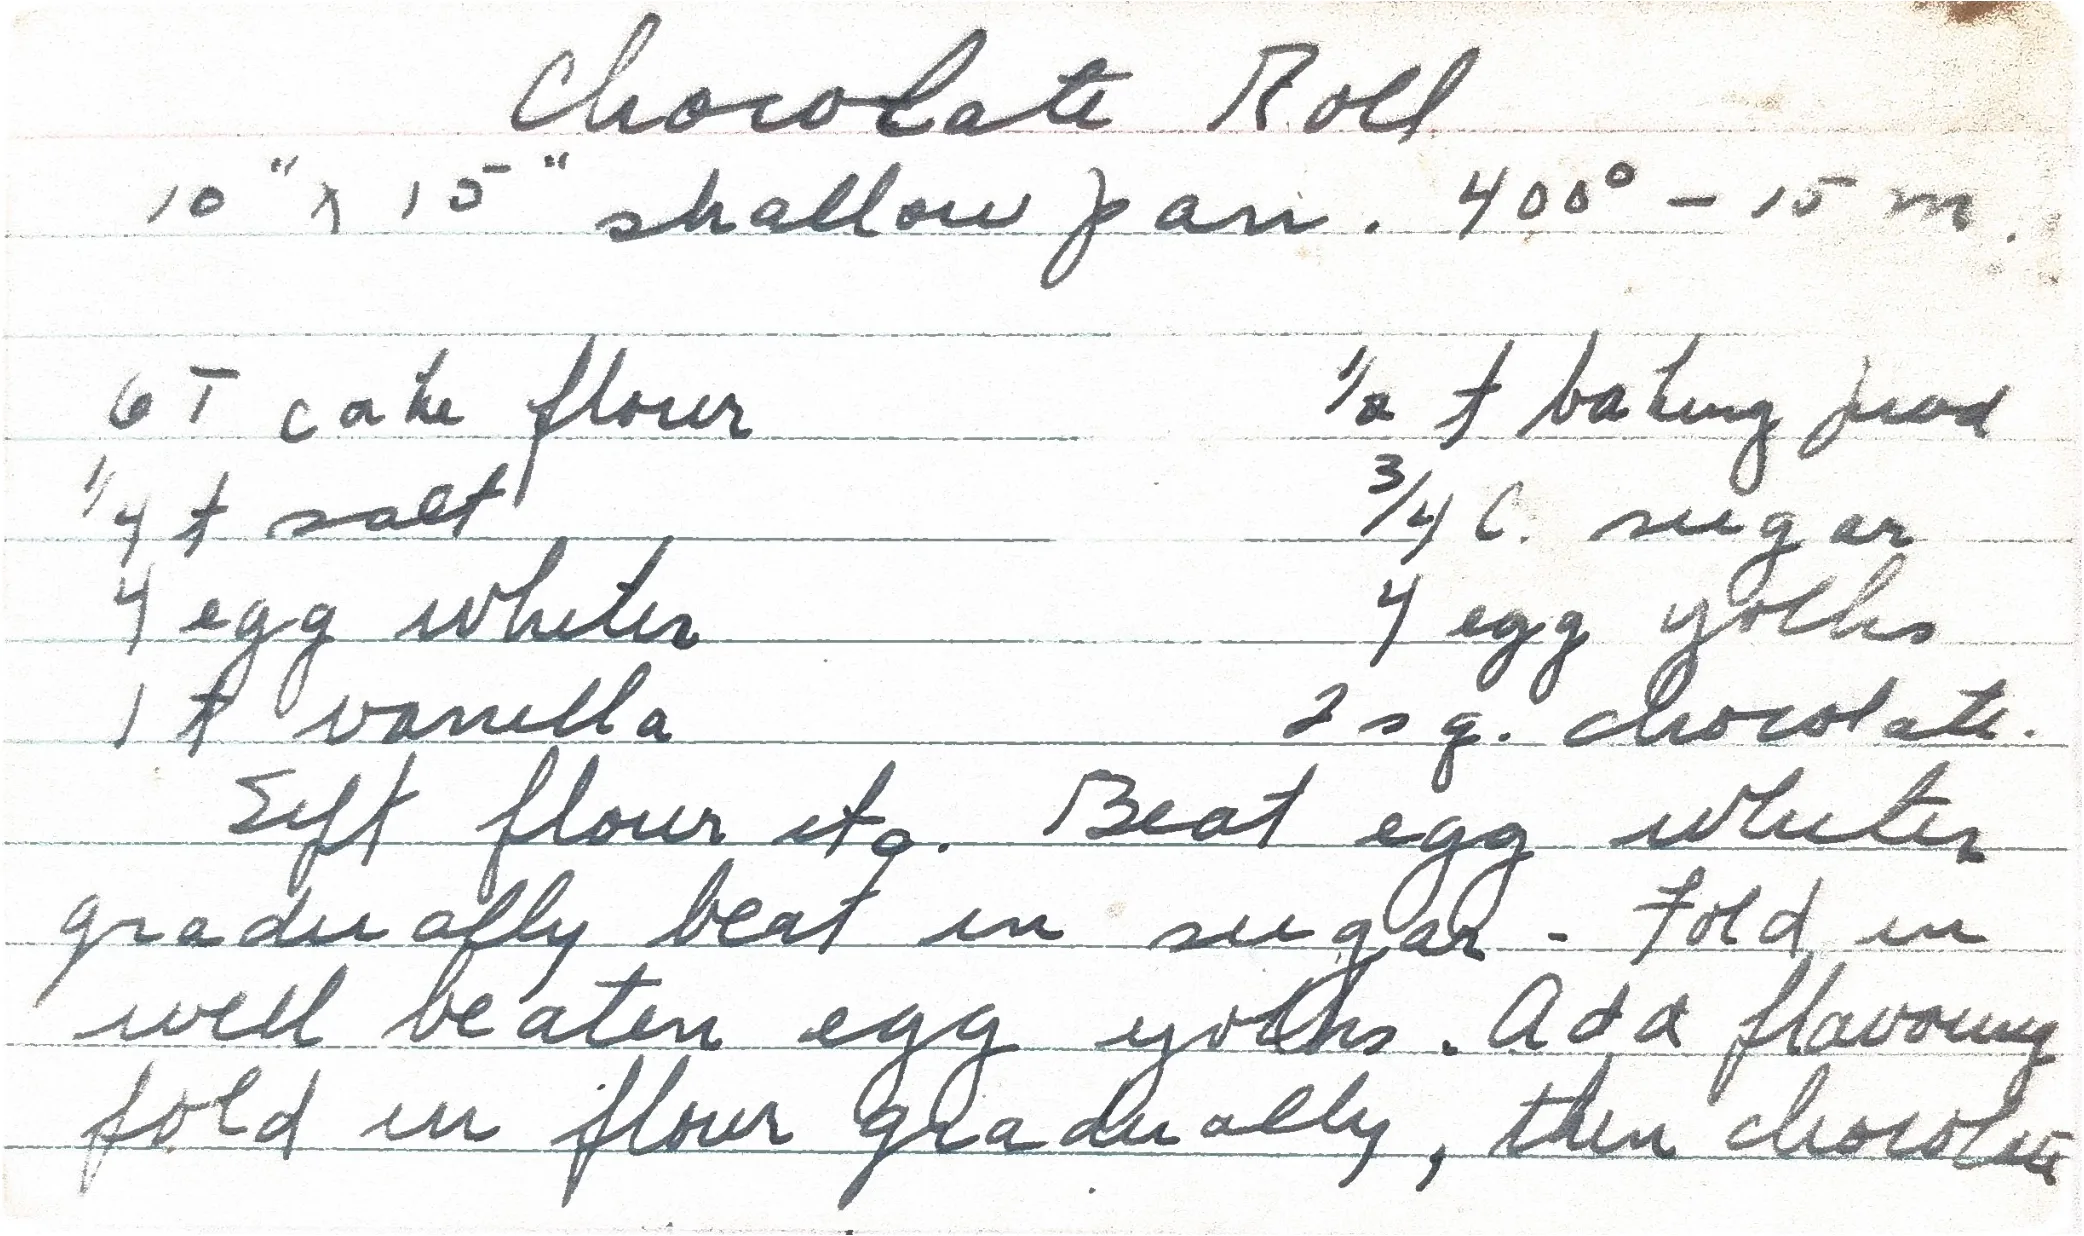 Chocolate Roll
10" x 15" shallow pan. 400° - 15 m.
6 T cake flour 1/2 t baking powd
1/4 t salt 3/4 C. sugar
4 egg whites 4 egg yolks
1 t vanilla 2 sq. chocolate.
Sift flour etc. Beat egg whites
gradually beat in sugar - Fold in
well beaten egg yolks. Add flavoring
fold in flour gradually, then chocolate